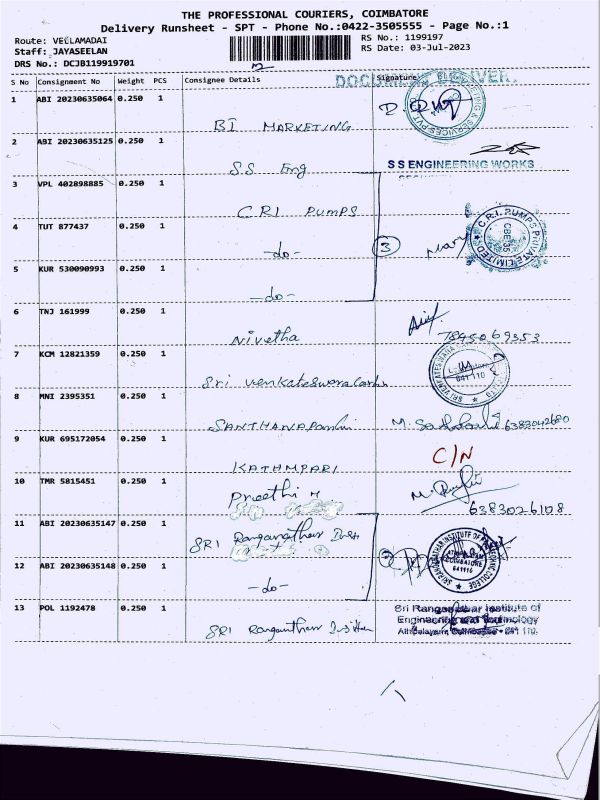 THE PROFESSIONAL COURIERS, COIMBATORE
Delivery Runsheet - SPT - Phone No.:0422-3505555 - Page No.:1
Route: VEELAMADAI
RS No.: 1199197
Staff: JAYASEELAN
RS Date: 03-Jul-2023
DRS No.: DCJB119919701
S No Consignment No Weight PCS Consignee Details Signature
1 ABI 20230635064 0.250 1
BI MARKETING
2 ABI 20230635125 0.250 1
S.S Eng
S S ENGINEERING WORKS
3 VPL 402898885 0.250 1
C.R.I PUMPS
4 TUT 877437 0.250 1
-do-
3
C.R.I. PUMPS PRIVATE LIMITED
CBE-35
5 KUR 530090993 0.250 1
-do-
6 TNJ 161999 0.250 1
Nivetha
7845069353
7 KCM 12821359 0.250 1
Sri Venkateswara
641 110
8 MNI 2395351 0.250 1
SANTHANA
M.
6383042680
9 KUR 695172054 0.250 1
C/N
KATHMPARI
10 TMR 5815451 0.250 1
Preethi M
6383026108
11 ABI 20230635147 0.250 1
SRI Ranganathar
COIMBATORE
12 ABI 20230635148 0.250 1
-do-
13 POL 1192478 0.250 1
SRI Ranganthar
Sri Ranganathar Institute of
Engineering and Technology
Athipalayam, Coimbatore - 641 110.